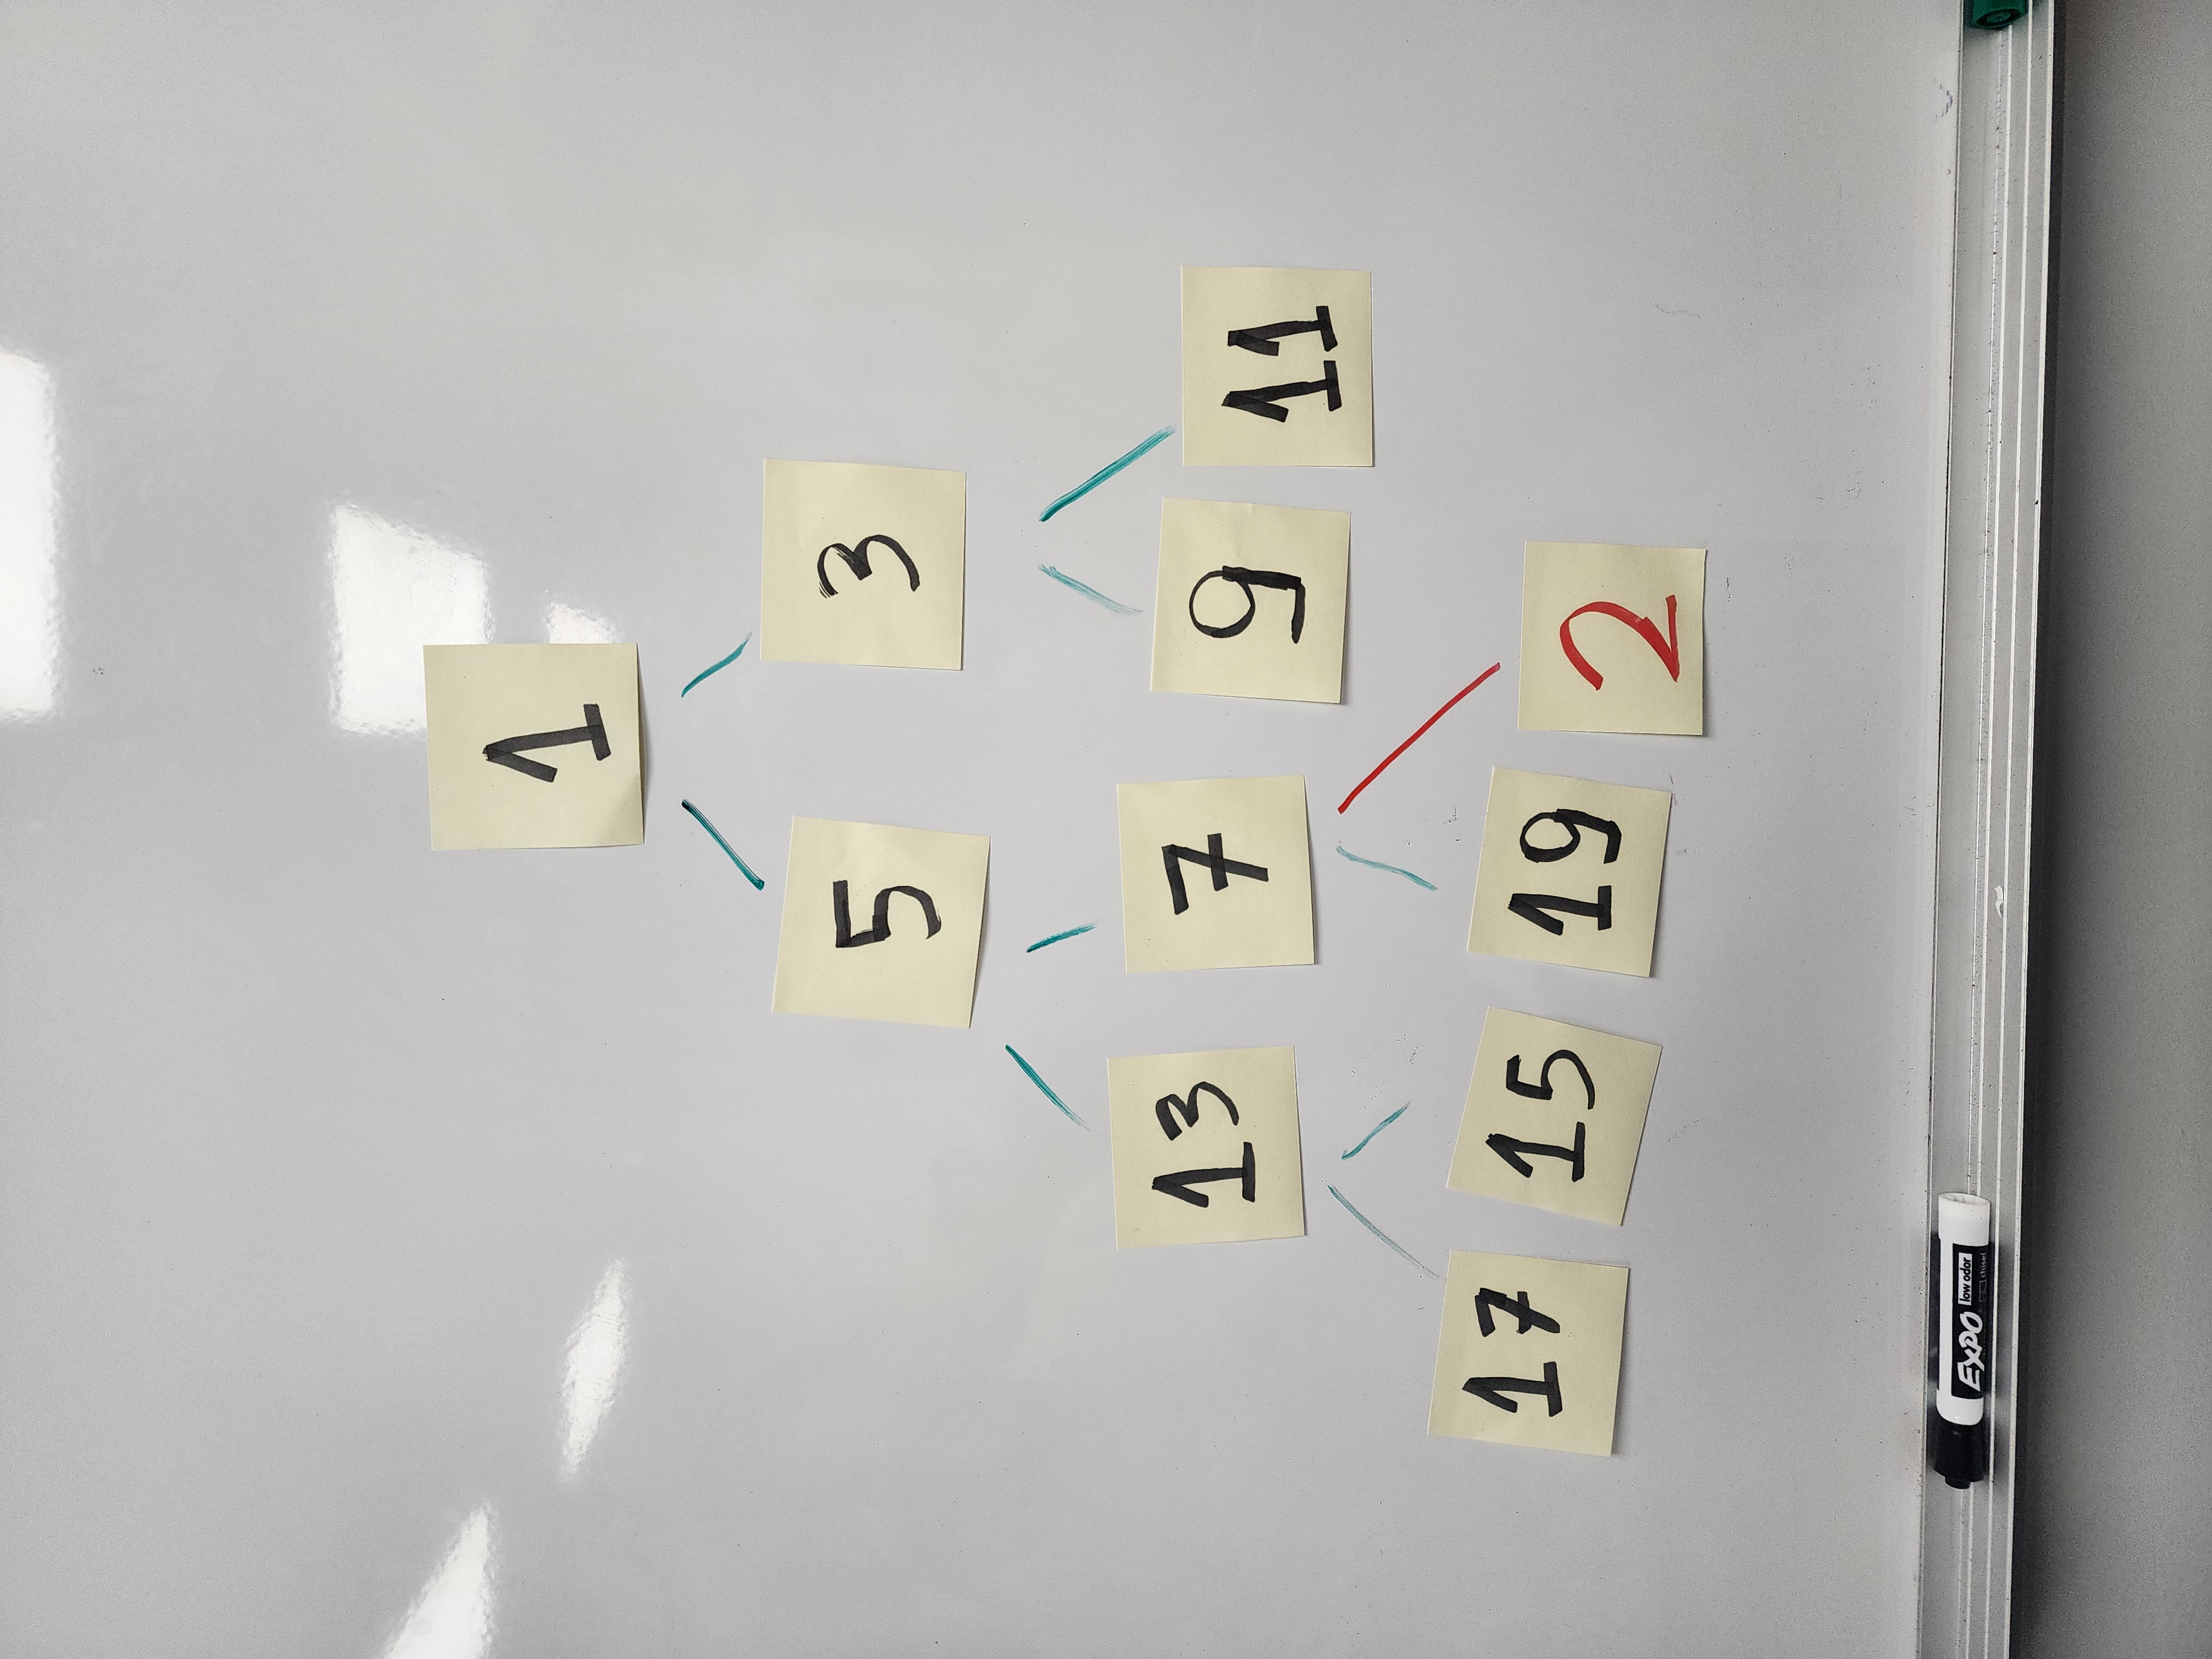 1
5 3
13 7 9 11
17 15 19 2
EXPO low odor
chisel